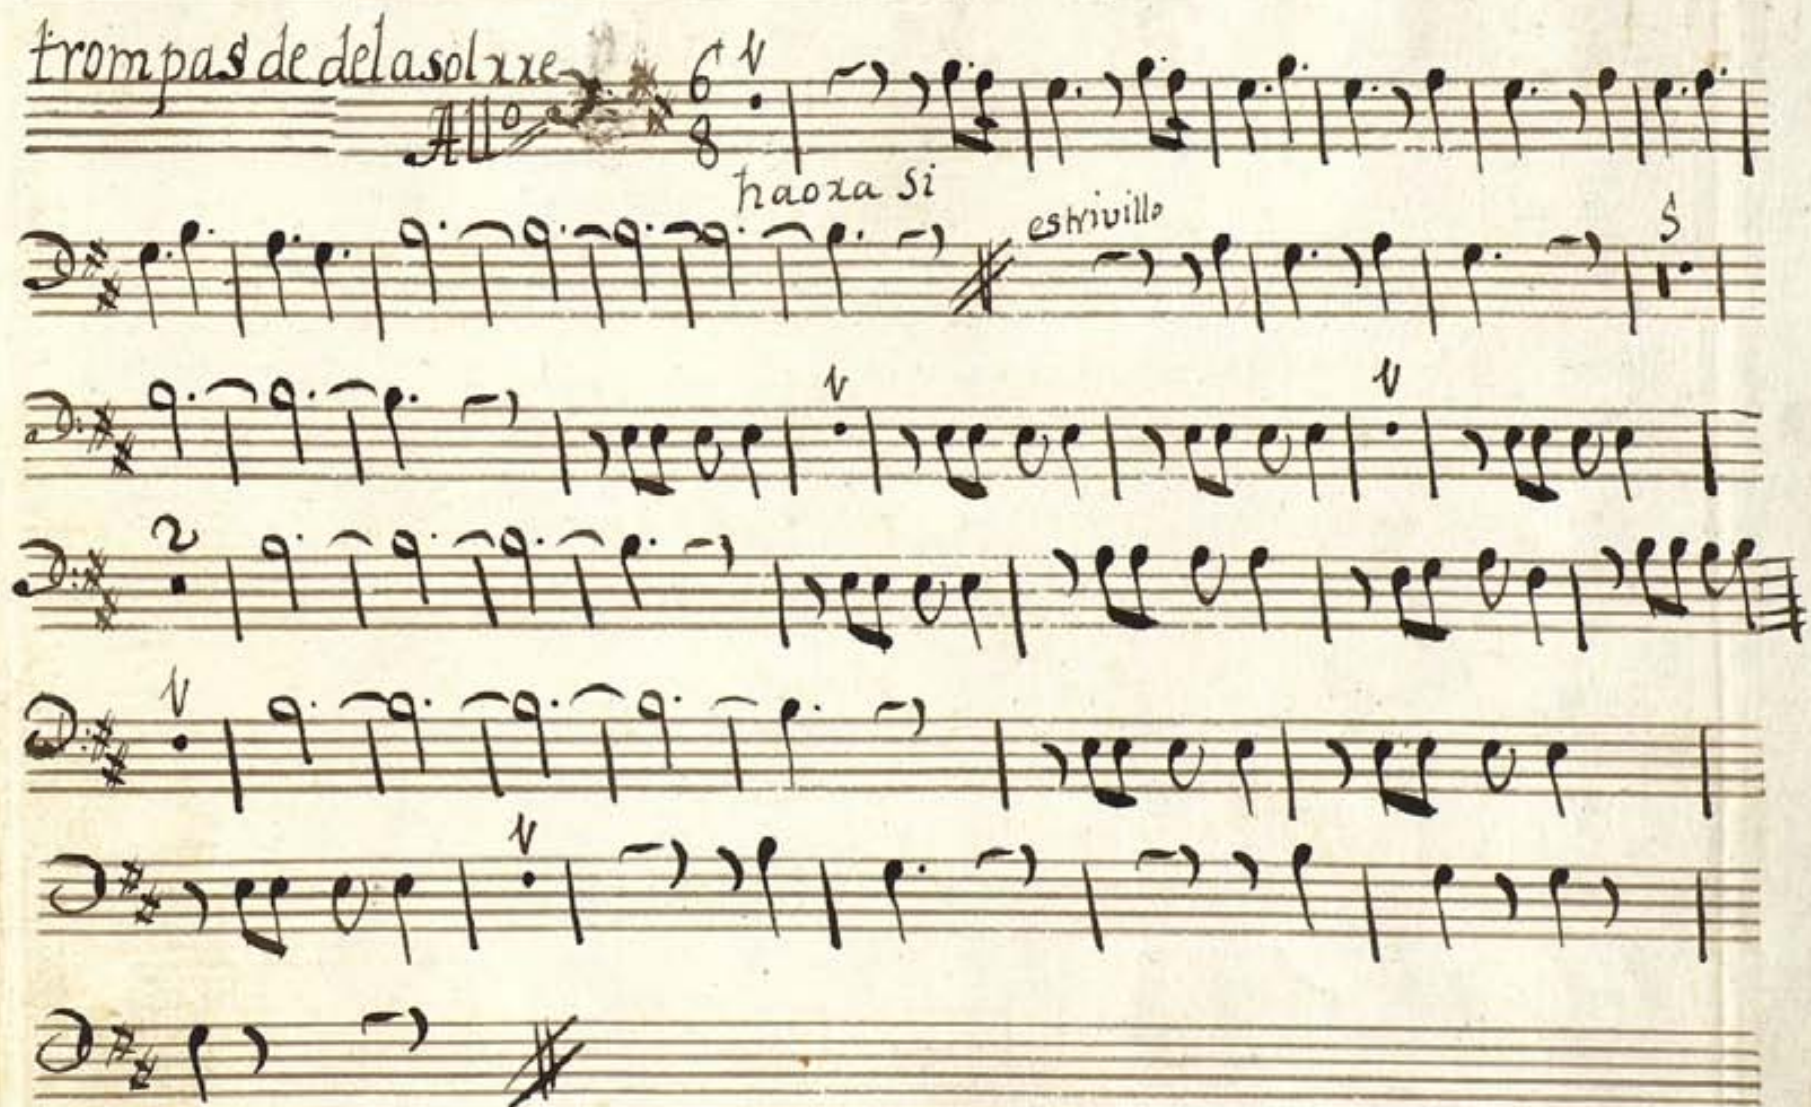 trompas de delasolxxe
All° 6 8
haoxa si
estrivillo
2